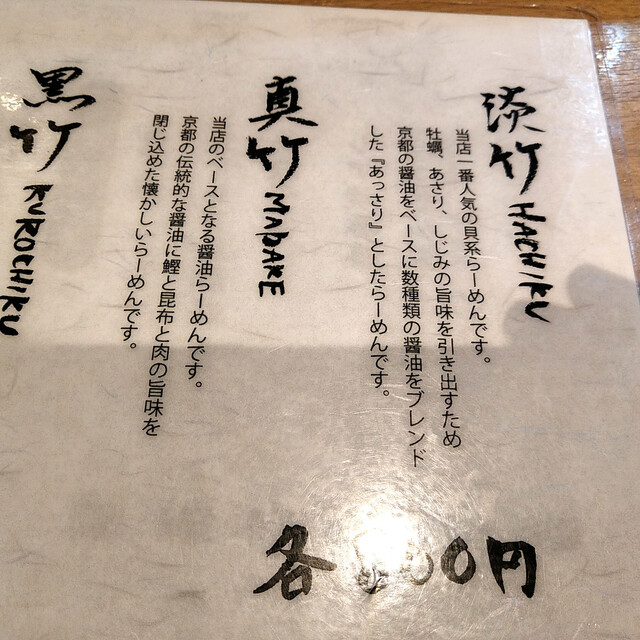 淡竹 HACHIKU
当店一番人気の貝系らーめんです。
牡蠣、あさり、しじみの旨味を引き出すため
京都の醤油をベースに数種類の醤油をブレンド
した『あっさり』としたらーめんです。
真竹 MADAKE
当店のベースとなる醤油らーめんです。
京都の伝統的な醤油に鰹と昆布と肉の旨味を
閉じ込めた懐かしいらーめんです。
黒竹 KUROCHIKU
各 00円